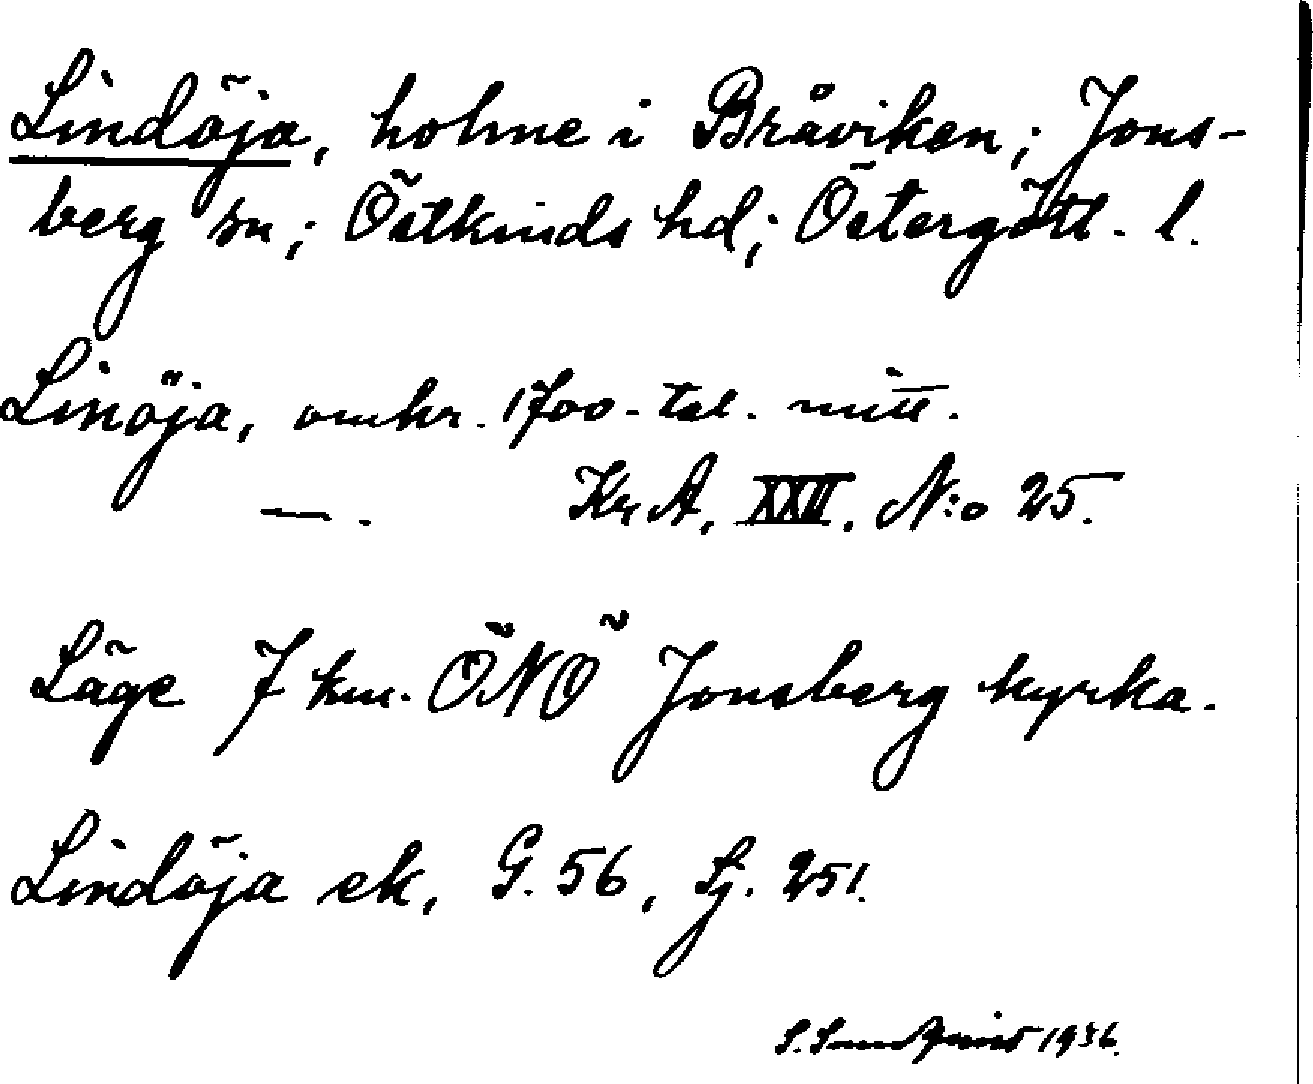 Lindöja, holme i Bråviken; Jons-
berg sn; Östkinds hd; Östergötl. l.
Linöja, omkr. 1700-tal. mitt.
—. KrA, XXII. N:o 25.
Läge 7 km. ÖNÖ Jonsberg kyrka.
Lindöja ek, G. 56, Sj. 251.
S. Sundqvist 1936.